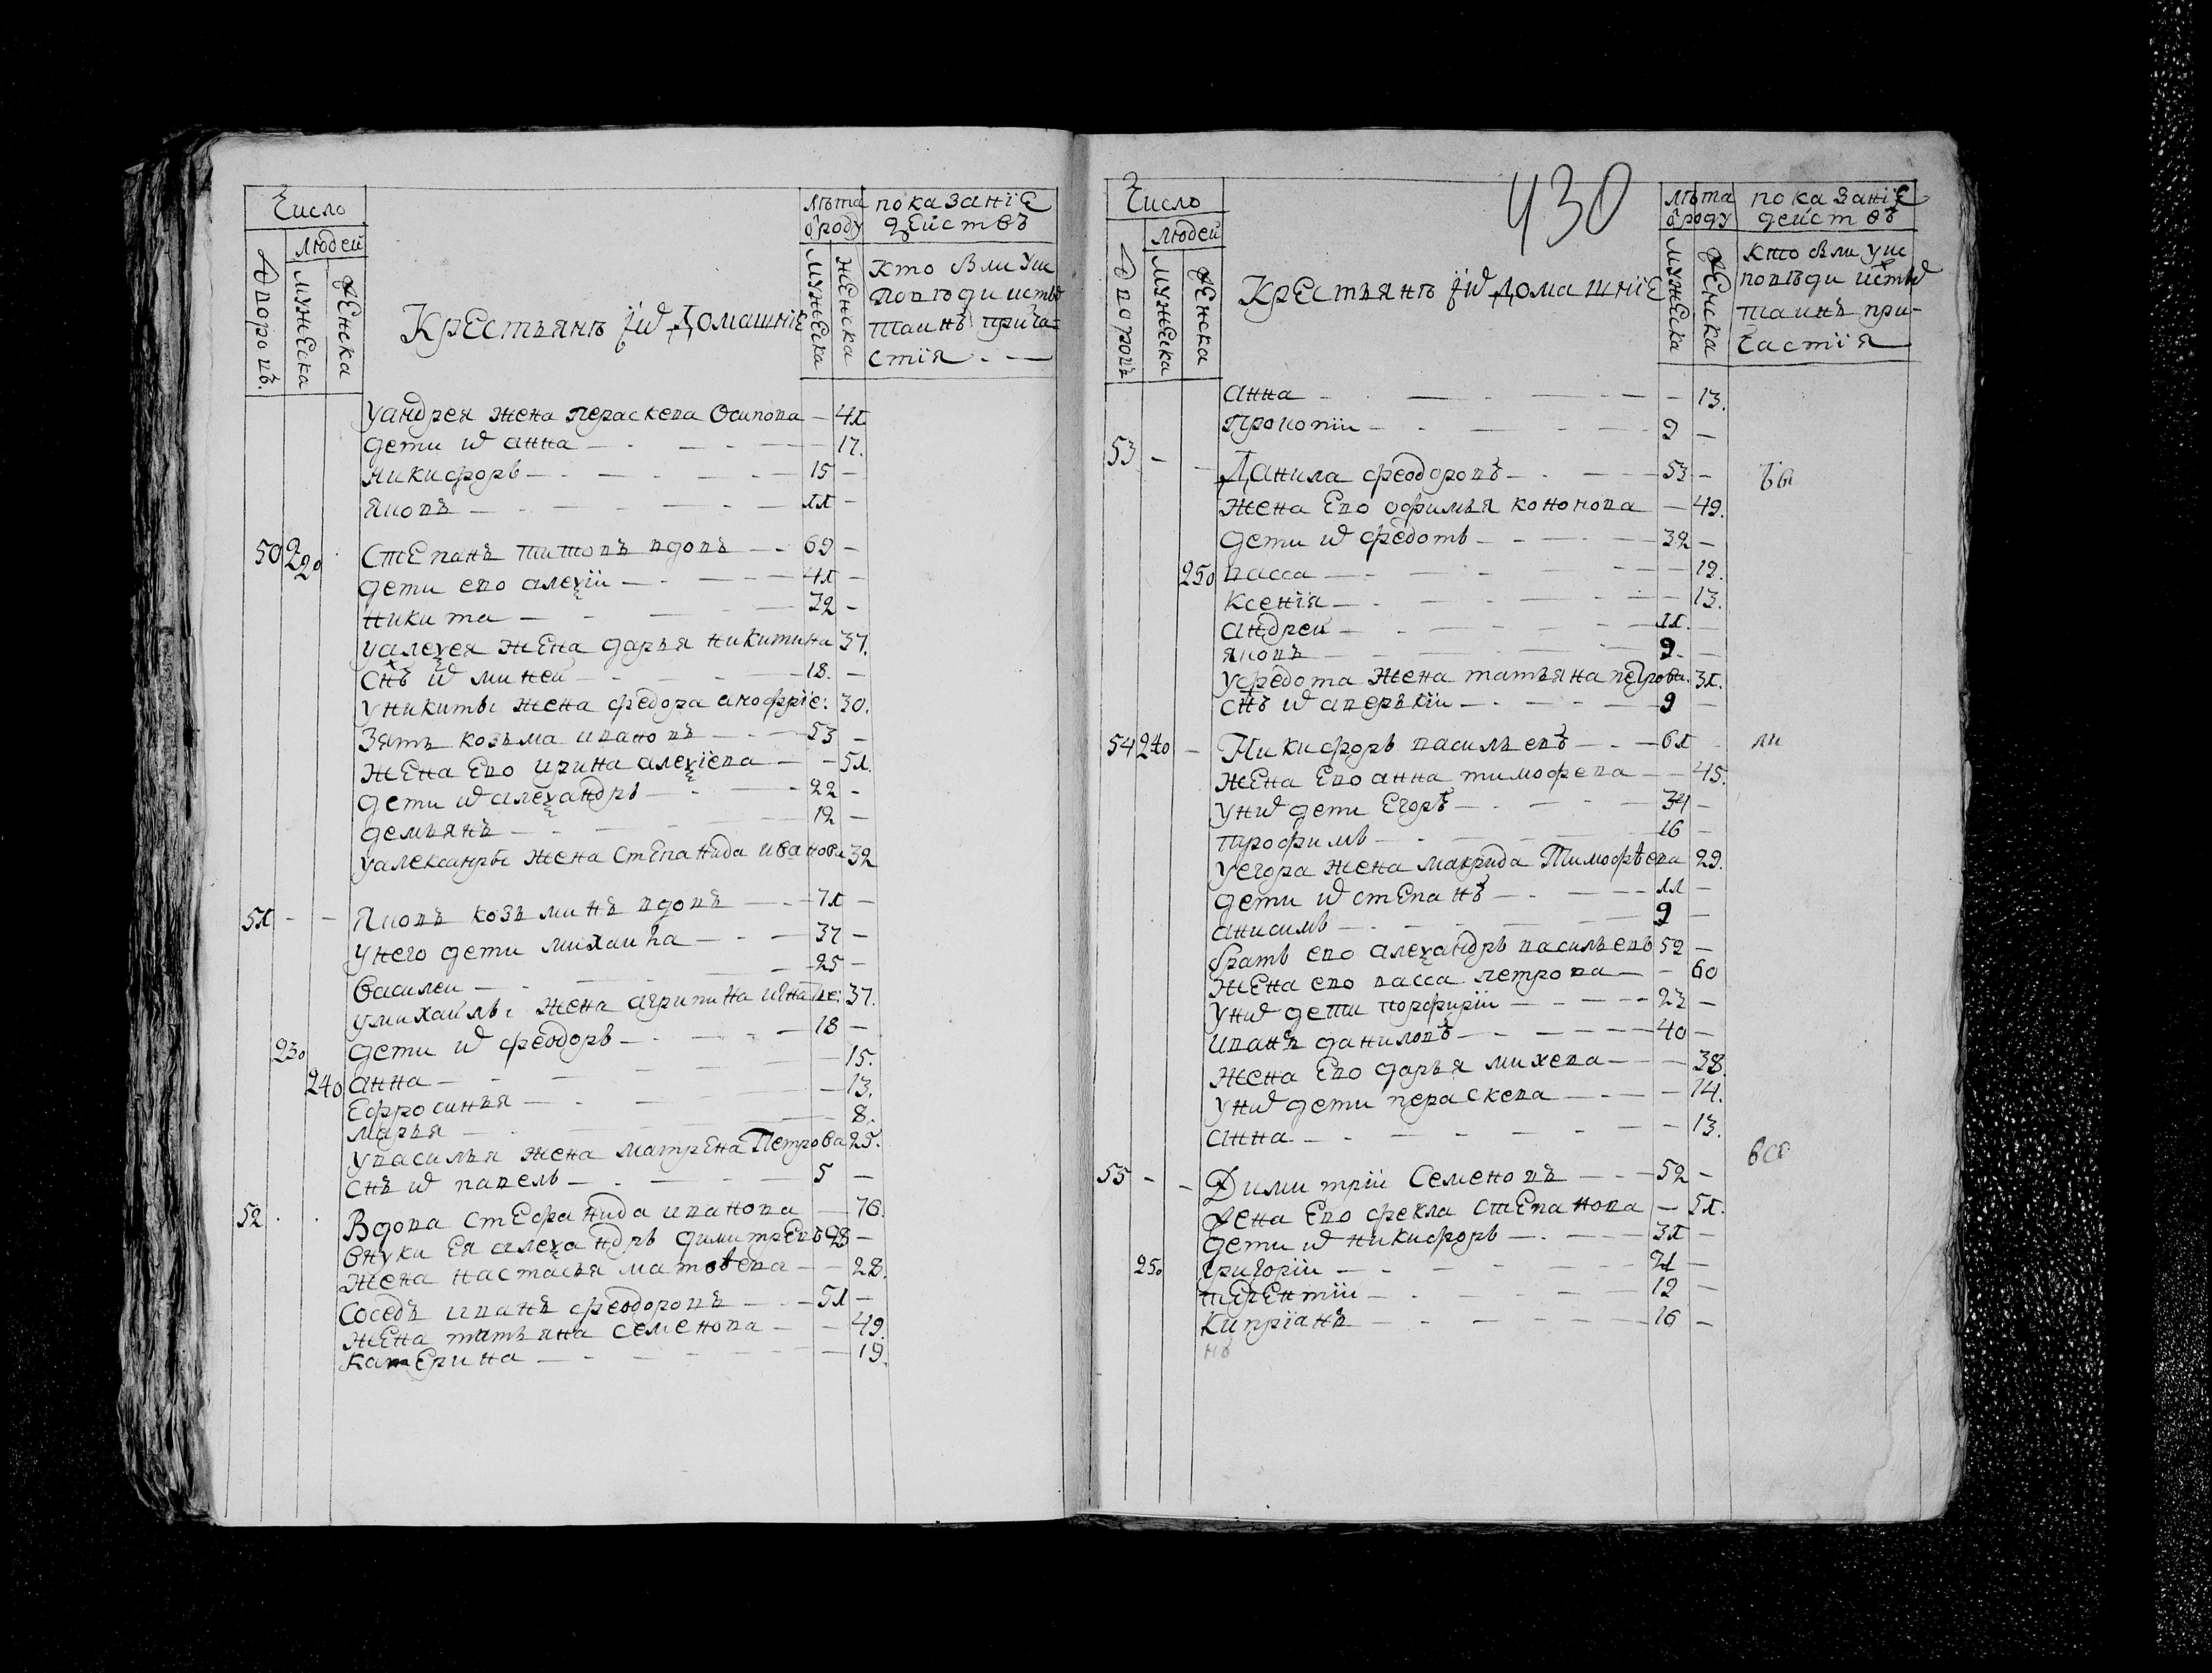 Число
людей
Дворовъ.
мужеска
женска
Крестьянъ їихъ домашнїе
лѣта ѿроду
мужеска
женска
показанїе дѣйствъ
кто былъ уис
повѣди исты
таинъ прича=
стїя
уандрея жена параскева осипова — 41
дети ихъ анна — 17.
никифоръ — 15 —
яковъ — 11 —
50 220 Степанъ титовъ вдовъ — 69 —
дети ево алеѯїи — 41 —
никита — 32 —
уалеѯея жена дарья никитина 37.
снъ ихъ миней — 18. —
уникиты жена федора анофрїе: 30.
зять козьма ивановъ — 53 —
жена ево ирина алеѯїева — 51.
дети ихъ алеѯандръ — 22 —
демьянъ — 12 —
уалександры жена степанида иванова 32
51 — — Яковъ козьминъ вдовъ — 71 —
унего дети михаила — 37 —
василеи — 25 —
умихаилы жена агрипина игнатье: 37.
230 дети ихъ феодоръ — 18 —
240 анна — 15.
Ефросинья — 13.
марья — 8.
увасилья жена матрена Петрова 25.
снъ ихъ павелъ — 5 —
52 Вдова стефанида иванова — 76.
внуки ея алеѯандръ димитревъ 28 —
жена настасья матвѣева — 28.
Соседъ иванъ феодоровъ — 51 —
жена татьяна семенова — 49.
катерина — 19.
430
Число
людей
Дворовъ
мужеска
женска
Крестьянъ їихъ домашнїе
лѣта ѿроду
мужеска
женска
показанїе дейстѣвъ
кто былъ уис
повѣди исты
таинъ при-
частїя
анна — 13.
Прокопїи — 9 —
53 — — Данила феодоровъ — 53 —
жена ево офимья кононова — 49.
дети ихъ федотъ — 32 —
250 васса — 12.
ксенїя — 13.
андреи — 11. —
яковъ — 9. —
уфедота жена татьяна петрова. 31.
снъ ихъ аверькїи — 9 —
54 240 — Никифоръ васильевъ — 61
жена ево анна тимофева — 45.
унихъ дети Егоръ — 34 —
трофимъ — 16 —
уегора жена макрида Тимофѣева 29.
дети ихъ степанъ — 11 —
анисимъ — 9 —
братъ ево алеѯандръ васильевъ 52 —
жена ево васса петрова — 60
унихъ дети порфирїи — 23 —
иванъ даниловъ — 40 —
жена ево дарья михева — 38.
унихъ дети параскева — 14.
анна — 13.
всѣ
55 — — Димитрїи Семеновъ — 52 —
жена ево фекла степанова — 51.
дети ихъ никифоръ — 31 —
250 григорїи — 21 —
терентїи — 12 —
кипрїанъ — 16 —